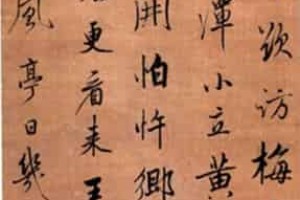 欵访梅
渾小立黄
開怕忤鄉
更看来王
風亭日幾